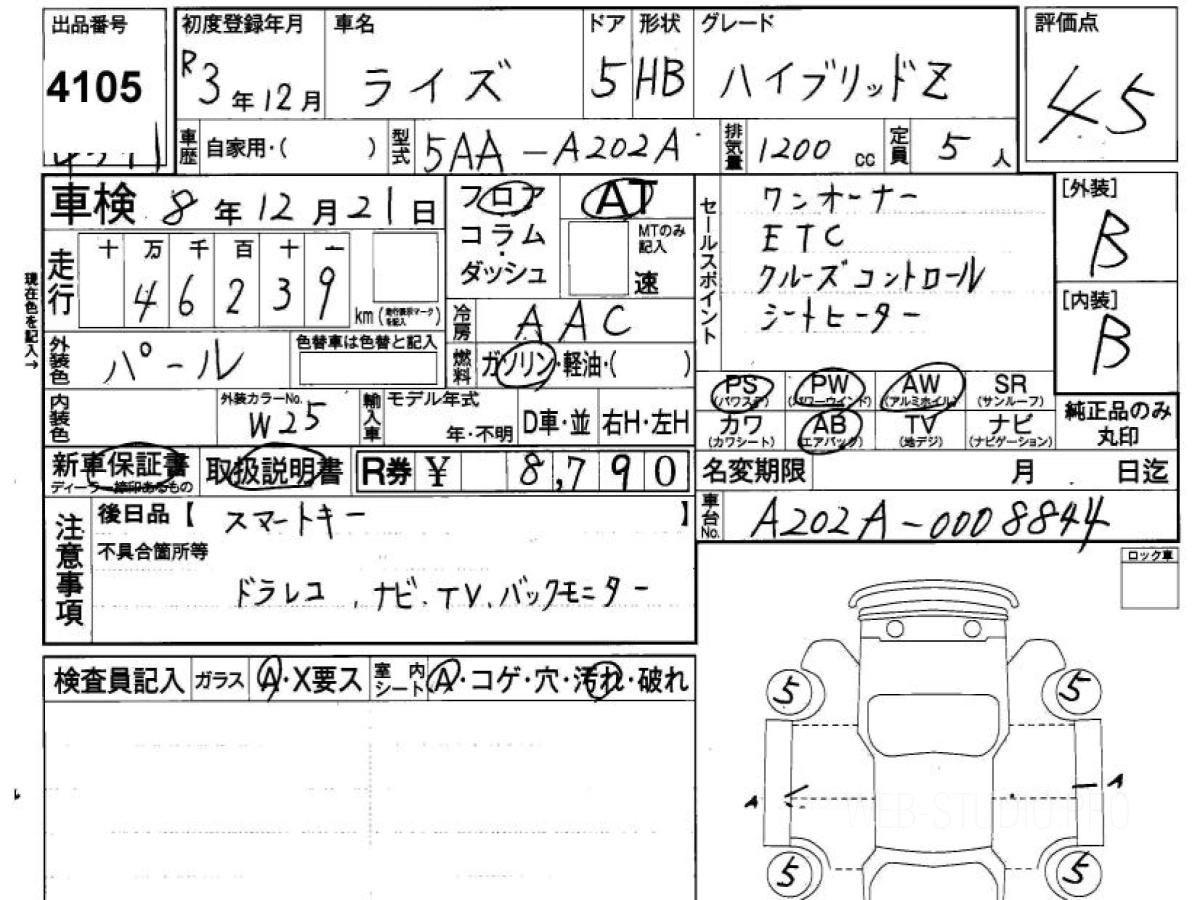 出品番号
4105
初度登録年月
R3年12月
車名
ライズ
ドア
5
形状
HB
グレード
ハイブリッドZ
評価点
4.5
車歴
自家用・( )
型式
5AA-A202A
排気量
1200 cc
定員
5人
車検 8年12月21日
フロア
コラム
ダッシュ
AT
MTのみ記入
速
セールスポイント
ワンオーナー
ETC
クルーズコントロール
シートヒーター
[外装]
B
[内装]
B
現在色を記入→
走行
十 万 千 百 十 一
4 6 2 3 9
km(走行表示マークを記入)
冷房
AAC
外装色
パール
色替車は色替と記入
燃料
ガソリン・軽油・( )
PS
(パワステ)
PW
(パワーウインド)
AW
(アルミホイル)
SR
(サンルーフ)
カワ
(カワシート)
AB
(エアバッグ)
TV
(地デジ)
ナビ
(ナビゲーション)
純正品のみ
丸印
内装色
外装カラーNo.
W25
輸入車
モデル年式
年・不明
D車・並
右H・左H
新車保証書
ディーラー締印あるもの
取扱説明書
R券 ¥ 8,790
名変期限 月 日迄
車台No.
A202A-0008844
注意事項
後日品【 スマートキー 】
不具合箇所等
ドラレコ、ナビ・TV、バックモニター
ロック車
検査員記入
ガラス
A・X要ス
室内シート
A・コゲ・穴・汚れ・破れ
5
5
A
A
WEB-STUDIO.PRO
5
5